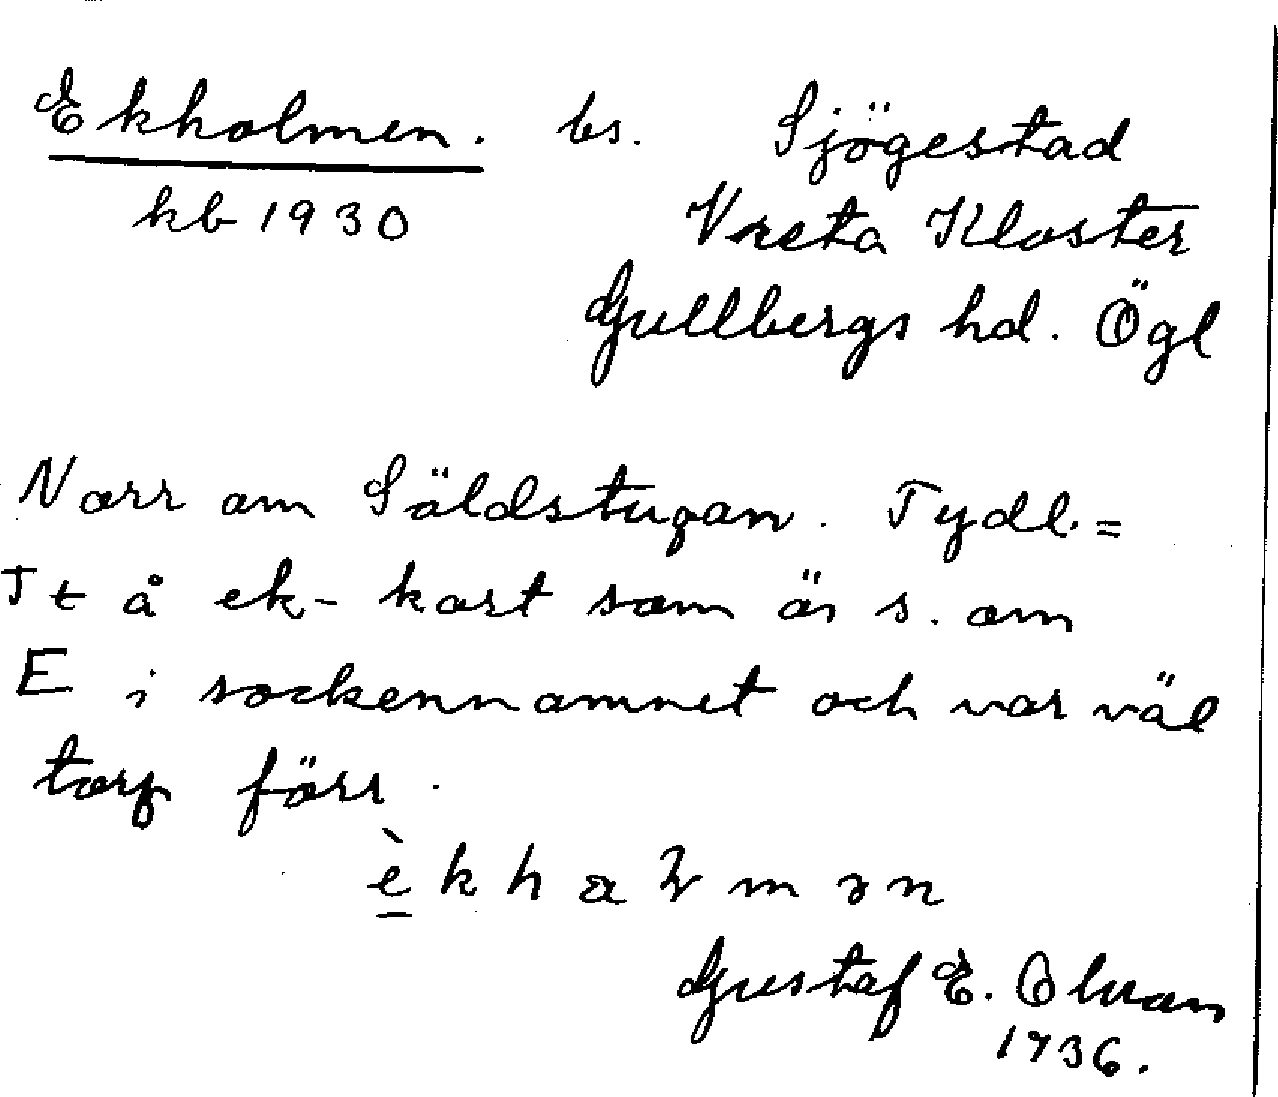 Ekholmen. bs. Sjögestad
kb 1930 Vreta Kloster
Gullbergs hd. Ögl
Norr om Säldstugan. Tydl. =
It å ek-kart som är s. om
E i sockennamnet och var väl
torp förr.
Gustaf E. Olson
1936.